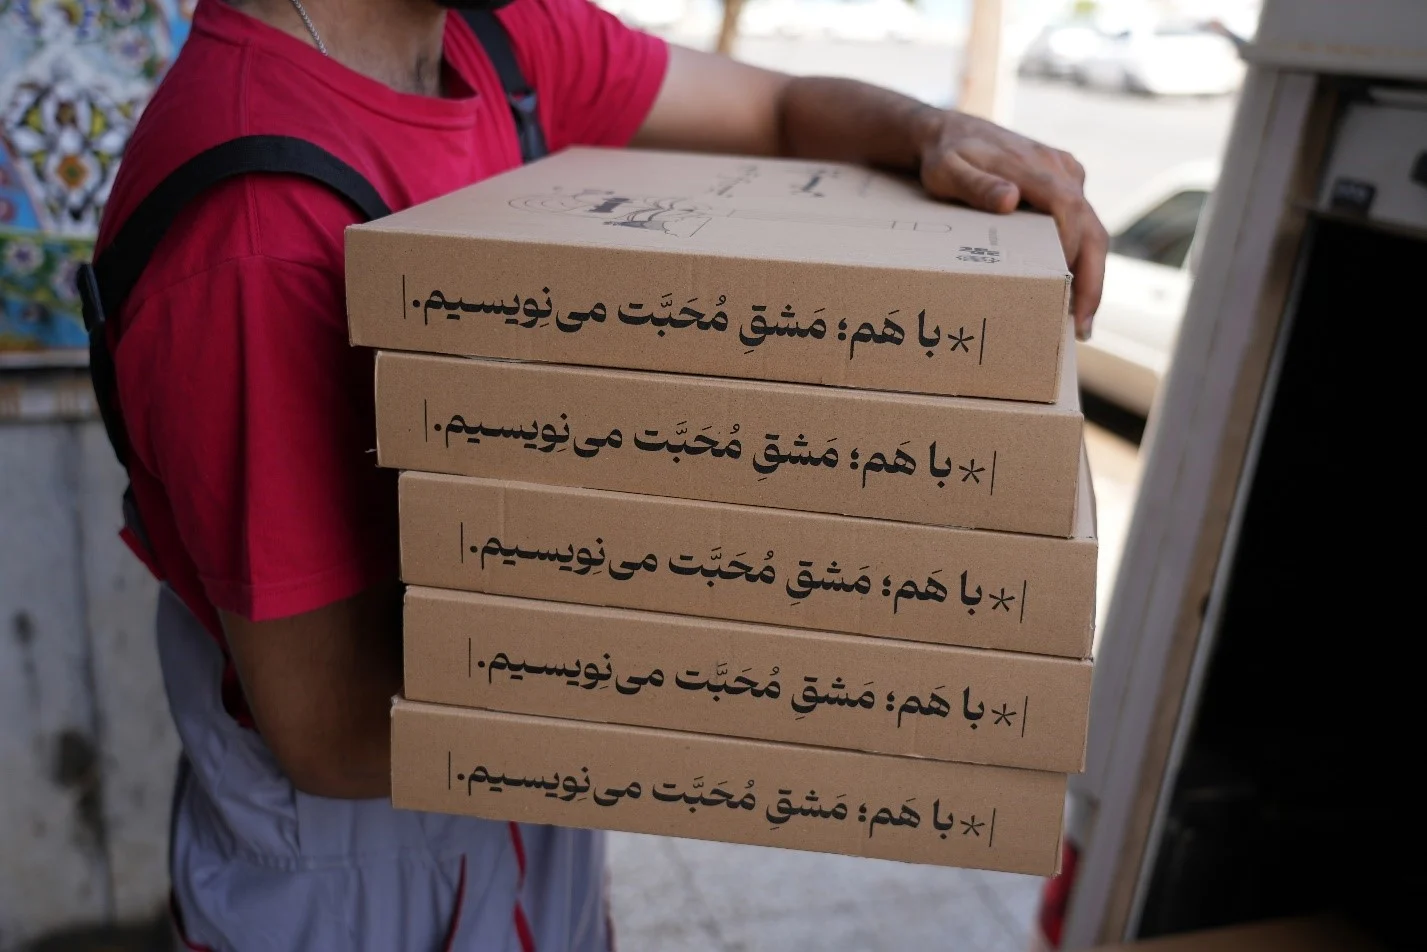 |* با هَم؛ مَشقِ مُحَبَّت می‌نِویسیم.|
|* با هَم؛ مَشقِ مُحَبَّت می‌نِویسیم.|
|* با هَم؛ مَشقِ مُحَبَّت می‌نِویسیم.|
|* با هَم؛ مَشقِ مُحَبَّت می‌نِویسیم.|
|* با هَم؛ مَشقِ مُحَبَّت می‌نِویسیم.|